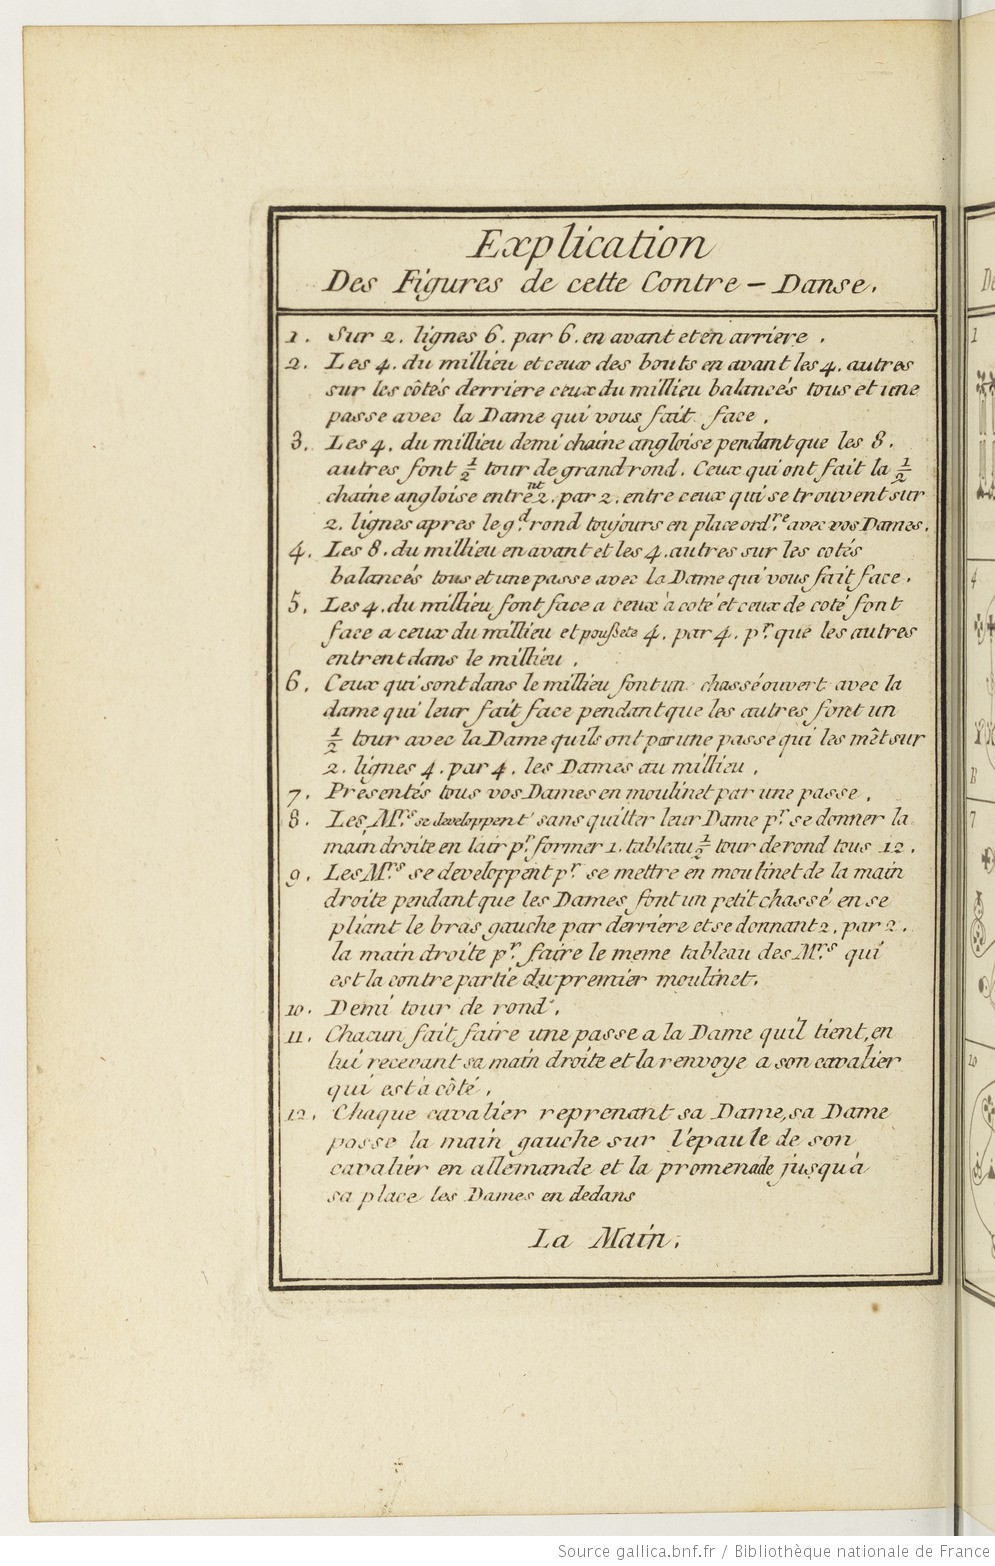 Explication
Des Figures de cette Contre - Danse.
1. Sur 2. lignes 6. par 6. en avant et en arriere.
2. Les 4. du millieu et ceux des bouts en avant les 4. autres
sur les côtés derriere ceux du millieu balancés tous et une
passe avec la Dame qui vous fait face.
3. Les 4. du millieu demi chaine angloise pendant que les 8.
autres font ½ tour de grand rond. Ceux qui ont fait la ½
chaine angloise entrent 2. par 2. entre ceux qui se trouvent sur
2. lignes apres le gd. rond toujours en place ordre. avec vos Dames.
4. Les 8. du millieu en avant et les 4. autres sur les cotés
balancés tous et une passe avec la Dame qui vous fait face.
5. Les 4. du millieu font face a ceux à coté et ceux de coté font
face a ceux du millieu et poussete 4. par 4. pr. que les autres
entrent dans le millieu.
6. Ceux qui sont dans le millieu font un chassé ouvert avec la
dame qui leur fait face pendant que les autres font un
½ tour avec la Dame quils ont par une passe qui les mêt sur
2. lignes 4. par 4. les Dames au millieu.
7. Présentés tous vos Dames en moulinet par une passe.
8. Les Mrs. se developpent sans quitter leur Dame pr. se donner la
main droite en lair pr. former 1. tableau ½ tour de rond tous 12.
9. Les Mrs. se developpent pr. se mettre en moulinet de la main
droite pendant que les Dames font un petit chassé en se
pliant le bras gauche par derriere et se donnant 2. par 2.
la main droite pr. faire le meme tableau des Mrs. qui
est la contre partie du premier moulinet.
10. Demi tour de rond.
11. Chacun fait faire une passe a la Dame qu'il tient, en
lui recevant sa main droite et la renvoye a son cavalier
qui est à côté.
12. Chaque cavalier reprenant sa Dame, sa Dame
passe la main gauche sur l'épaule de son
cavalier en allemande et la promenade jusqu'à
sa place les Dames en dedans
La Main.
De
1
4
E
7
10
Source gallica.bnf.fr / Bibliothèque nationale de France